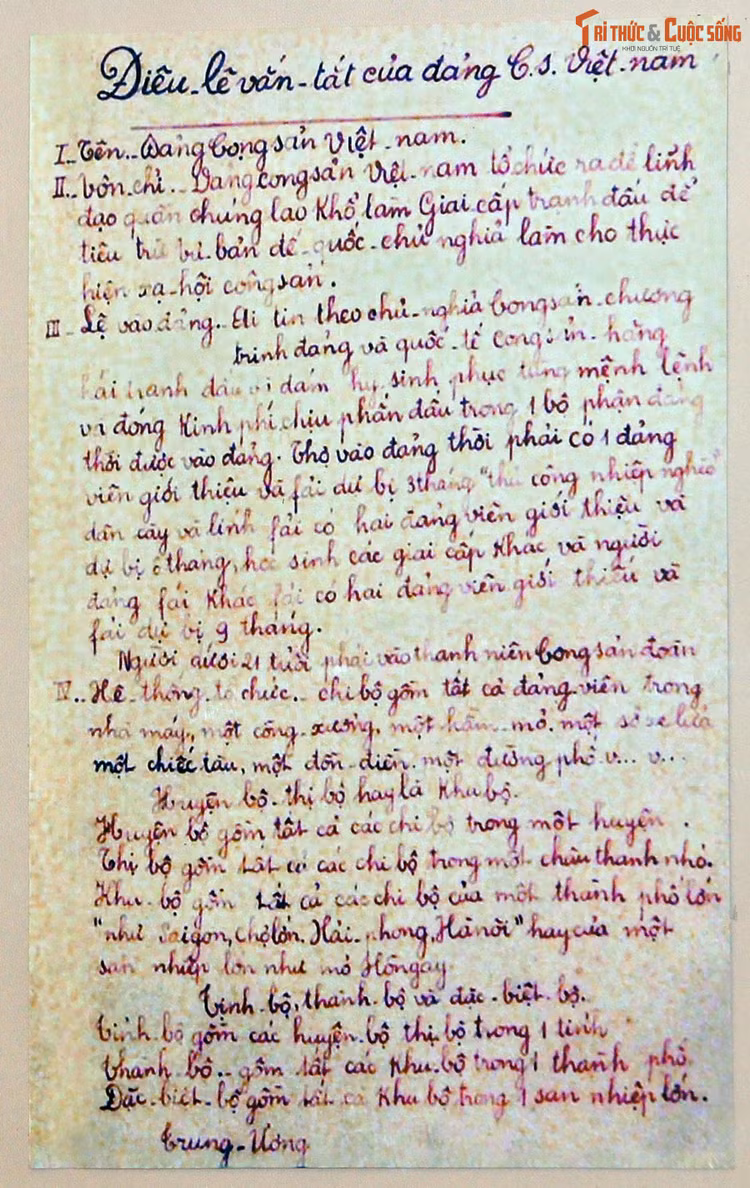 TRI THỨC & CUỘC SỐNG
KHƠI NGUỒN TRI TUỆ
Điều-lệ vắn-tắt của đảng C.S. Việt-nam
I_ Tên.. Đảng Cộng sản Việt-nam.
II.. Tôn chỉ.. Đảng cộng sản Việt-nam tổ chức ra để lĩnh
đạo quần chúng lao khổ làm Giai cấp tranh đấu để
tiêu trừ tư bản đế-quốc-chủ nghĩa làm cho thực
hiện xã-hội cộng sản.
III_ Lệ vào đảng.. Ai tin theo chủ-nghĩa Cộng sản-chương
trình đảng và quốc-tế cộng sản-hăng
hái tranh đấu và dám hy sinh phục tùng mệnh lệnh
và đóng Kinh phí, chịu phấn đấu trong 1 bộ phận đảng
thời được vào đảng. Thợ vào đảng thời phải có 1 đảng
viên giới thiệu và fải dự bị 3 tháng "thủ công nhiệp nghèo"
dân cày và lính fải có hai đảng viên giới thiệu và
dự bị 6 tháng, học sinh các giai cấp khác và người
đảng fái khác fải có hai đảng viên giới thiệu và
fải dự bị 9 tháng.
Người dưới 21 tuổi phải vào thanh niên Cộng sản đoàn
IV.. Hệ-thống-tổ chức.. chi bộ gồm tất cả đảng-viên trong
nhà máy, một công-xưởng, một hầm-mỏ, một sở xe lửa
một chiếc tàu, một đồn-điền, một đường phố v... v...
Huyện bộ, thị bộ hay là Khu bộ.
Huyện bộ gồm, tất cả các chi bộ trong một huyện.
Thị bộ gồm tất cả các chi bộ trong một châu thành nhỏ.
Khu-bộ gồm tất cả các chi bộ của một thành phố lớn
"như Saigon, chợ lớn, Hải-phong, Hà nội" hay của một
sản nhiệp lớn như mỏ Hongay
Tỉnh-bộ, thành-bộ và đặc-biệt-bộ.
Tỉnh-bộ gồm các huyện-bộ thị bộ trong 1 tỉnh
Thành-bộ.. gồm tất các Khu-bộ trong 1 thành phố
Đặc-biệt-bộ gồm tất cả Khu bộ trong 1 sản nhiệp lớn.
Trung-Ương